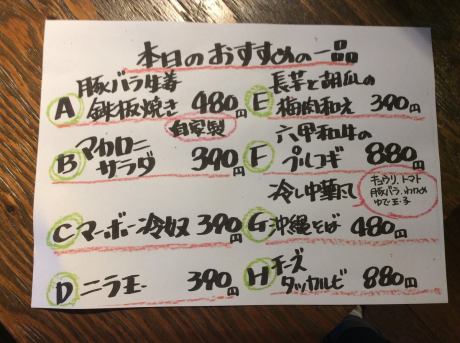 本日のおすすめの一品
A 豚バラ生姜
鉄板焼き 480円
自家製
B マカロニ
サラダ 390円
C マーボー冷奴 390円
D ニラ玉 390円
E 長芋と胡瓜の
梅肉和え 390円
F 六甲和牛の
プルコギ 880円
冷し中華にて
キュウリ、トマト
豚バラ、わかめ
ゆで玉子
G 沖縄そば 480円
H チーズ
タッカルビ 880円